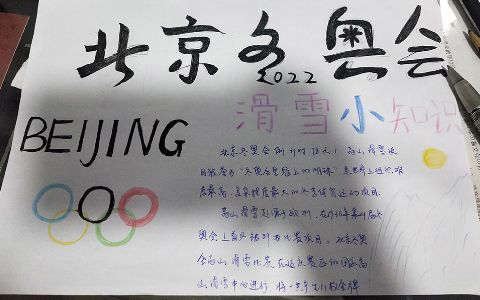 北京冬奥会
2022
滑雪小知识
BEIJING
北京冬奥会倒计时 天！高山滑雪被
称为“冬奥会皇冠上的明珠”，是
高山滑雪起源于欧洲，在1936年第4届冬
奥会上首次被列为比赛项目。北京冬奥
会高山滑雪比赛，在延庆赛区的国家高
山滑雪中心进行，将一共产生11枚金牌